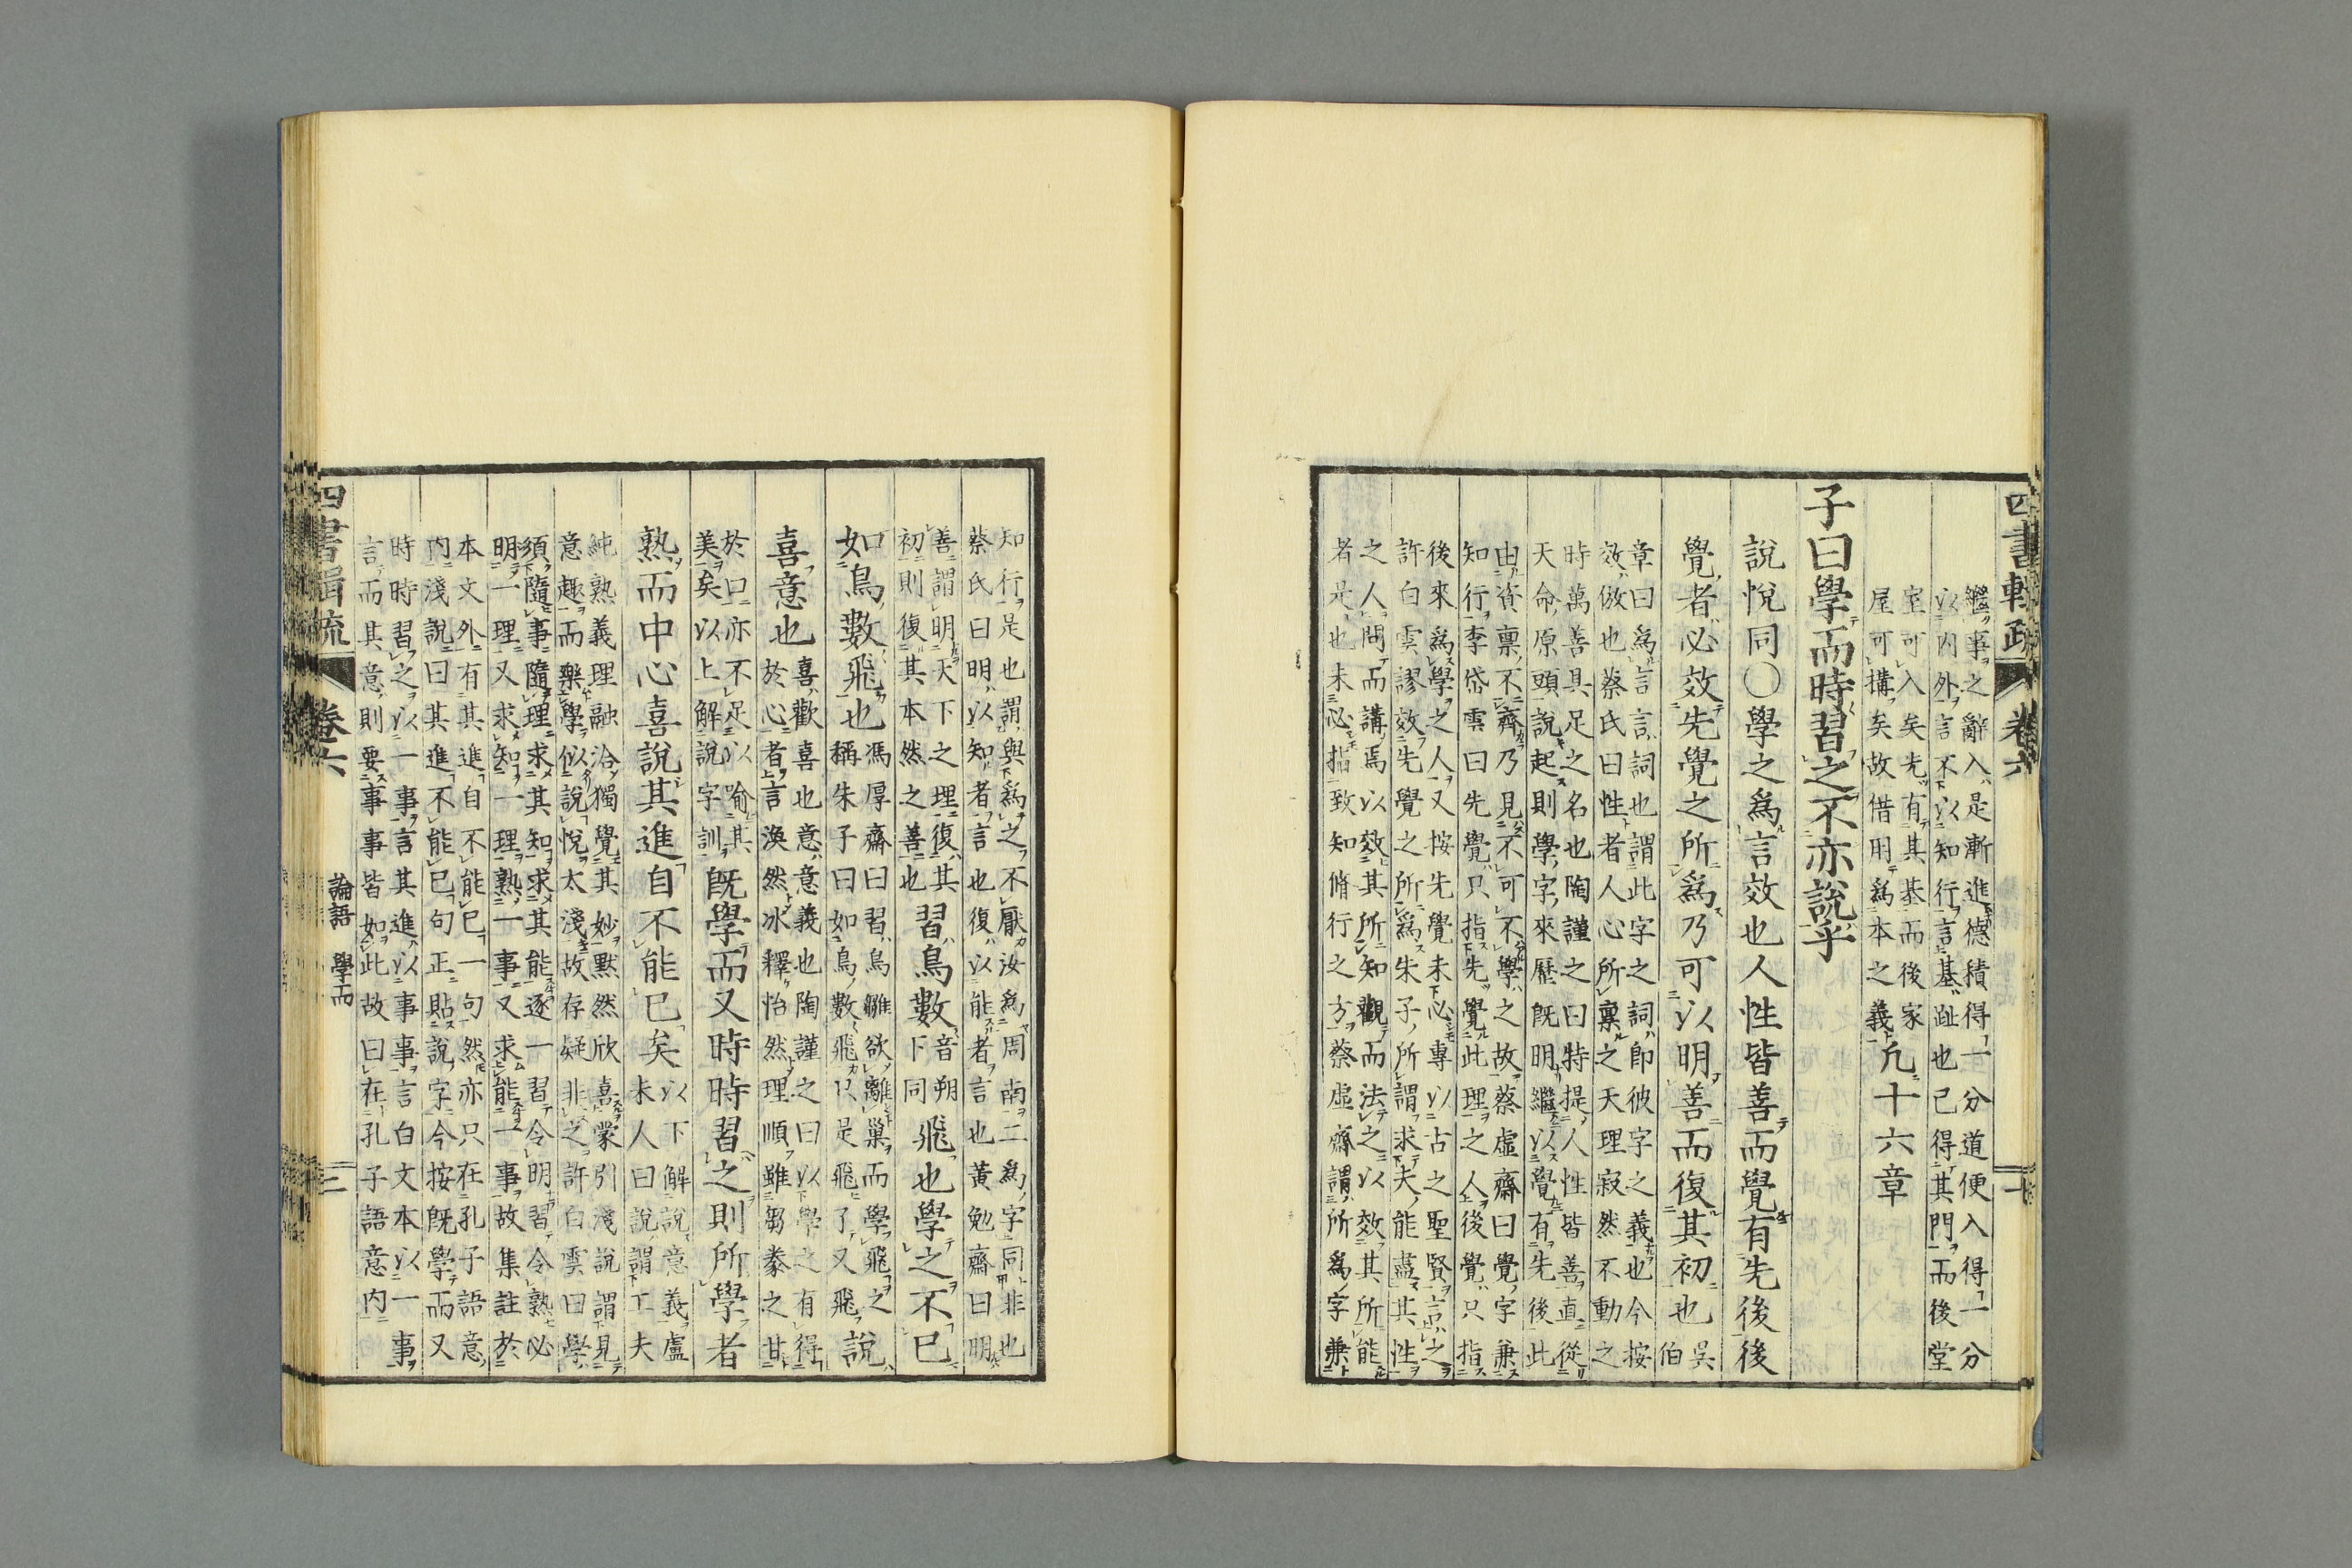 四書輯疏 卷六 二
繼事之辭入是漸進德積得一分道便入得一分
以內外言不以知行言基趾也已得其門而後堂
室可入矣先有其基而後家
屋可搆矣故借用爲本之義 凡十六章
子曰學而時習之不亦說乎
說悅同〇學之爲言效也人性皆善而覺有先後後
覺者必效先覺之所爲乃可以明善而復其初也 吳
伯
章曰爲言言詞也謂此字之詞即彼字之義也今按
效倣也蔡氏曰性者人心所稟之天理寂然不動之
時萬善具足之名也陶謹之曰特提人性皆善直從
天命原頭說起則學字來歷旣明繼以覺有先後此
由資稟不齊乃見不可不學之故蔡虛齋曰覺字兼
知行李岱雲曰先覺只指先覺此理之人後覺只指
後來爲學之人又按先覺未必專以古之聖賢言之
許白雲謬效先覺之所爲朱子所謂求夫能盡其性
之人問而講焉以效其所知觀而法之以效其所能
者是也未必指致知脩行之方蔡虛齋謂所爲字兼
知行是也謂與爲之不厭汝爲周南二爲字同非也
蔡氏曰明以知者言也復以能者言也黃勉齋曰明
善謂明天下之理復其
初則復其本然之善也 習鳥數音
朔下
同飛也學之不已
如鳥數飛也 馮厚齋曰習鳥雛欲離巢而學飛之
稱朱子曰如鳥數飛只是飛了又飛 說
喜意也 喜歡喜也意意義也陶謹之曰以學之有得
於心者言渙然冰釋怡然理順雖芻豢之甘
於口亦不足以喻其
美矣以上解說字訓 旣學而又時時習之則所學者
熟而中心喜說其進自不能已矣 以下解說意義盧
未人曰說謂工夫
純熟義理融洽獨覺其妙默然欣喜蒙引淺說謂見
意趣而樂學似說悅太淺故存疑非之許白雲曰學
須隨事隨理求其知求其能逐一習令明習令熟必
明一理又求知一理熟一事又求能一事故集註於
本文外有其進自不能已一句然亦只在孔子語意
內淺說曰其進不能已句正貼說字今按旣學而又
時時習之以一事言其進以事事言白文本以一事
言而其意則要事事皆如此故曰在孔子語意內
四書輯疏 卷六 論語 學而 三